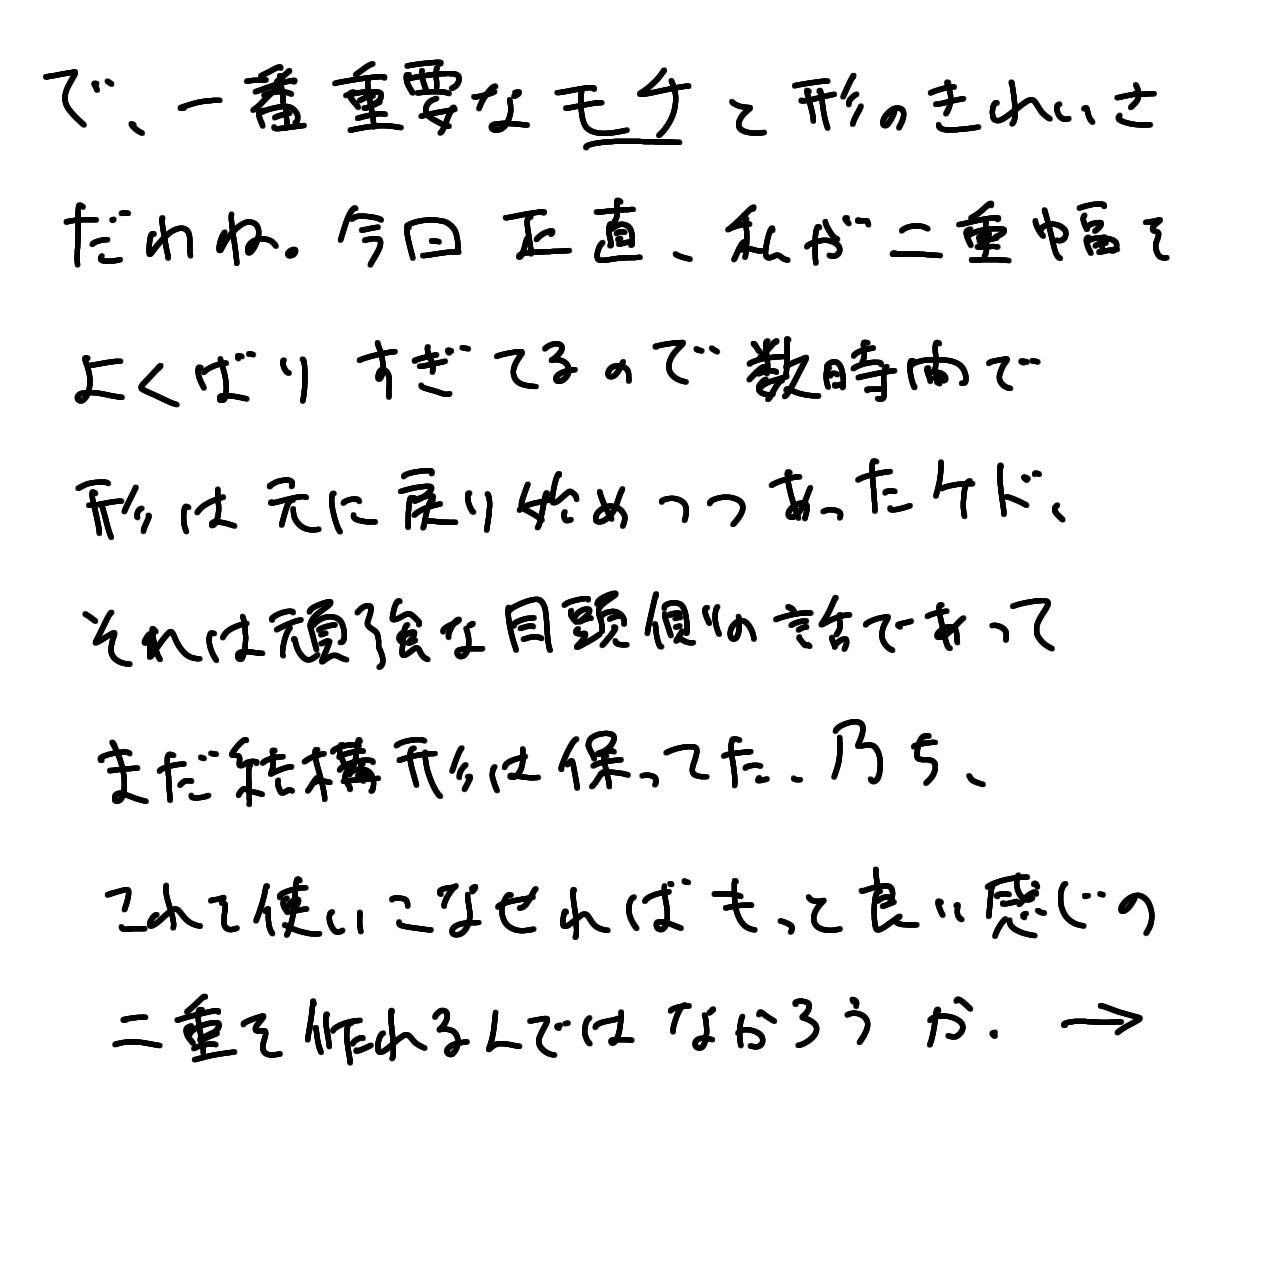 で、一番重要なモチと形のきれいさ
だわね。今回正直、私が二重幅を
よくばりすぎてるので数時間で
形は元に戻り始めつつあったケド、
それは頑強な目頭側の話であって
まだ結構形は保ってた。乃ち、
これて使いこなせればもっと良い感じの
二重を作れるんではなかろうか。→